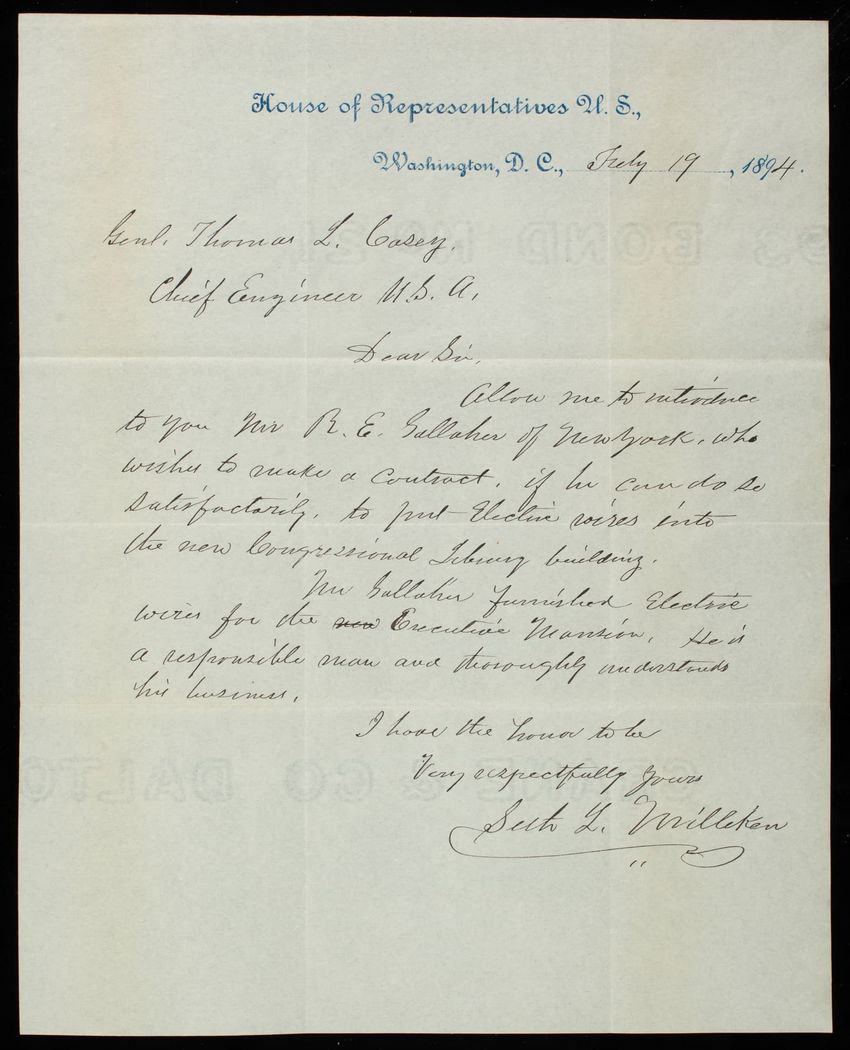 House of Representatives U. S.,
Washington, D. C., July 19, 1894.
Genl. Thomas L. Casey,
Chief Engineer U.S. A,
Dear Sir,
Allow me to introduce
to you Mr R. E. Gallaher of New York, who
wishes to make a contract, if he can do so
satisfactorily, to put Electric wires into
the new Congressional Library building.
Mr Gallaher furnished Electric
wires for the new Executive Mansion. He is
a responsible man and thoroughly understands
his business.
I have the honor to be
Very respectfully yours
Seth L. Milliken